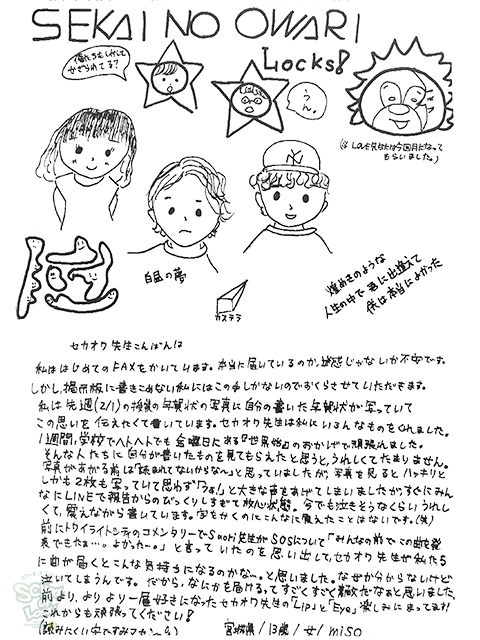 SEKAI NO OWARI
Locks!
俺たちもしかして
かざられてる?
うん。
(※ LOVE先生には今回月になって
もらいました。)
白昼の夢
カステラ
煌めきのような
人生の中で君に出逢えて
僕は本当によかった
セカオワ先生こんばんは
私ははじめてのFAXをかいています。本当に届いているのか、迷惑じゃないか不安です。
しかし、掲示板に書きこめない私にはこの手しかないのでおくらさせていただきます。
私は先週(2/1)の授業の年賀状の写真に自分の書いた年賀状が写っていて
この思いを伝えたくて書いています。セカオワ先生は私にいろんなものをくれました。
1週間、学校でヘトヘトでも金曜日にある『世界始』のおかげで頑張れました。
そんな人たちに自分が書いたものを見てもらえたと思うと、うれしくてたまりません。
写真があがる前は「読まれてないからな〜」と思っていましたが、写真を見るとハッキリと
しかも2枚も写っていて思わず「うお!」と大きな声をあげてしまいましたが、すぐにみん
なにLINEで報告からのびっくりしすぎて放心状態。今でも泣きそうなくらいうれし
くて、震えながら書いています。字をかくのにこんなに震えたことはないです。(笑)
前にトワイライトシティのコメンタリーでSaori先生がSOSについて「みんなの前でこの曲を発
表できたぁ…。よかった…。」と言っていたのを思い出して、セカオワ先生が私たち
に曲が届くとこんな気持ちになるのかな…。と思いました。なぜか分からないけど
泣いてしまうんです。だから、なにかを届けるってすごくすごく素敵だなぁと思いました。
前より、よりより一層好きになったセカオワ先生の「Lip」と「Eye」楽しみにまってます!
これからも頑張ってください!
宮城県/13歳/女/miso